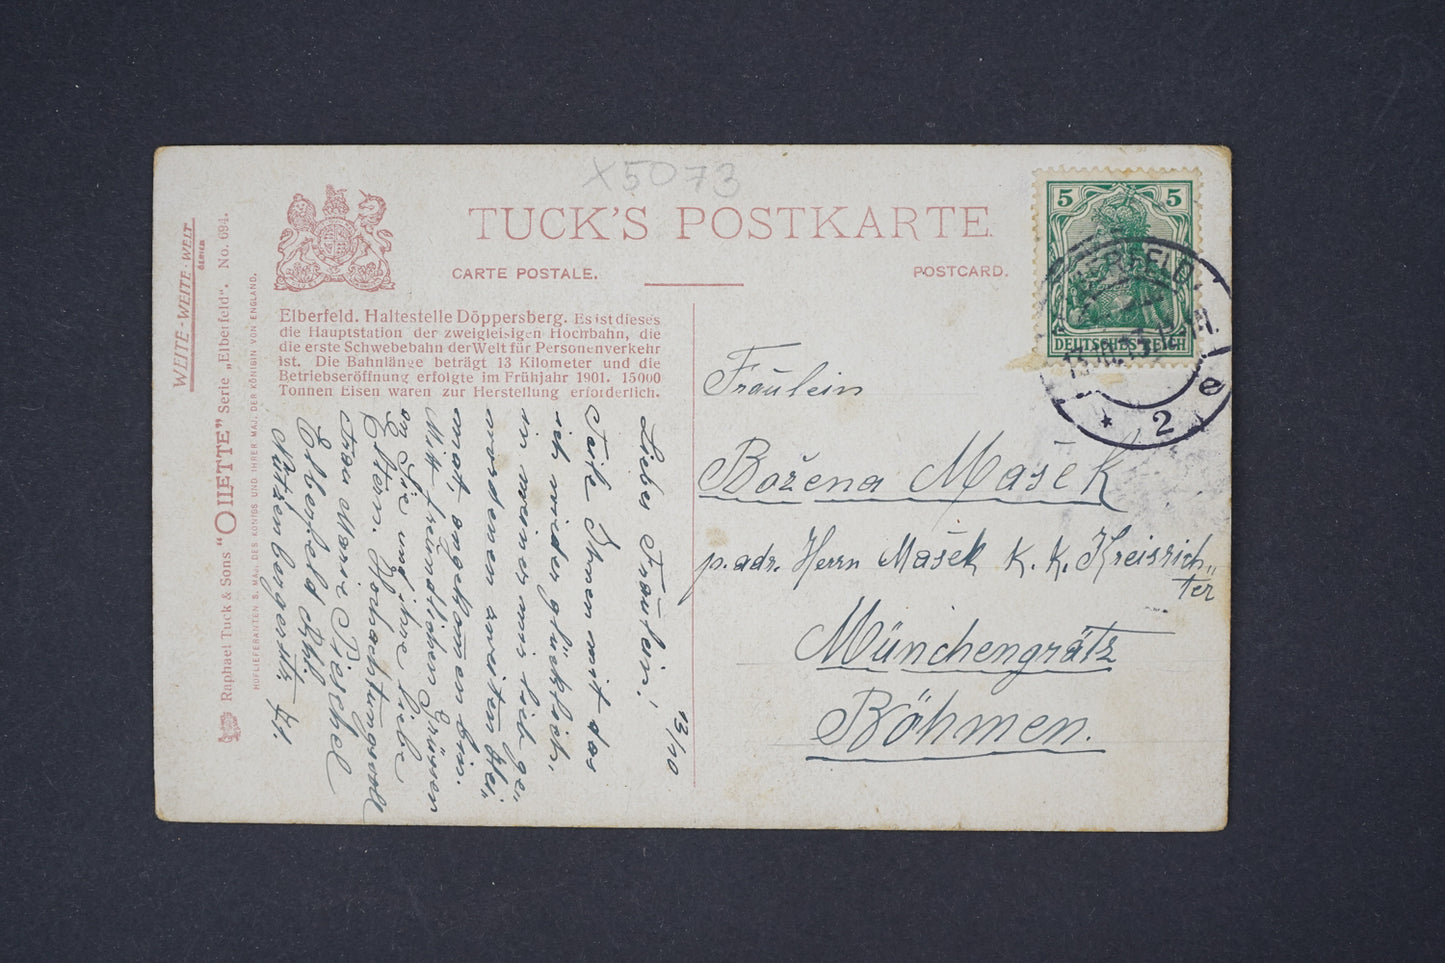 X5073
TUCK'S POSTKARTE
CARTE POSTALE.
POSTCARD.
WEITE-WEITE-WELT
SERIEN
Raphael Tuck & Sons "OILETTE" Serie „Elberfeld". No. 694.
HOFLIEFERANTEN S. MAJ. DES KÖNIGS UND IHRER MAJ. DER KÖNIGIN VON ENGLAND.
Elberfeld. Haltestelle Döppersberg. Es ist dieses
die Hauptstation der zweigleisigen Hochbahn, die
die erste Schwebebahn der Welt für Personenverkehr
ist. Die Bahnlänge beträgt 13 Kilometer und die
Betriebseröffnung erfolgte im Frühjahr 1901. 15000
Tonnen Eisen waren zur Herstellung erforderlich.
13/10
Liebes Fräulein!
Teile Ihnen mit das
ich wieder glücklich
in meiner mir lieb ge„
wordenen zweiten Hei„
mat angekommen bin.
Mitt freundlichen Grüssen
an Sie und ihre liebe
Eltern. Hochachtungsvoll
Frau Marie Pieschel
Elberfeld
Nützenbergerstr. 41.
5 5
DEUTSCHES REICH
ELBERFELD.
13.10.13.
* 2 e
Fräulein
Božena Mašek
p. adr. Herrn Mašek K. K. Kreisrich„
ter
Münchengrätz
Böhmen.